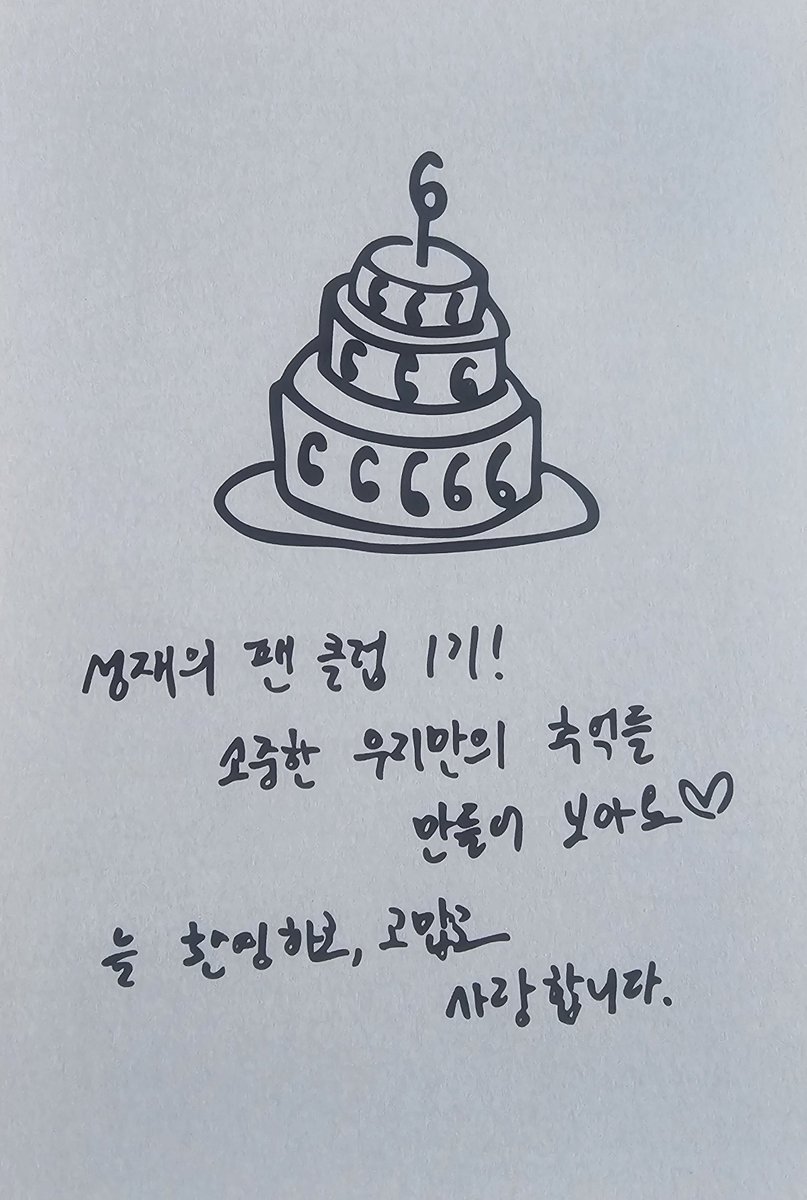 6
6 6 6
6 6 6
6 6 6 6 6
성재의 팬 클럽 1기!
소중한 우리만의 추억들
만들어 보아요♡
늘 환영하고, 고맙고
사랑합니다.